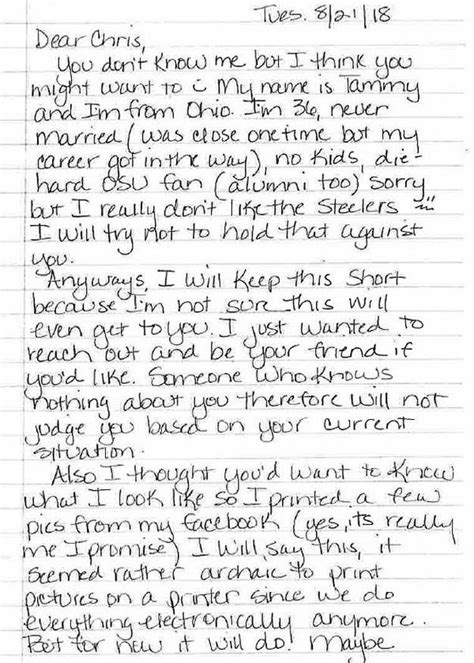 Tues. 8/21/18
Dear Chris,
You don't know me but I think you
might want to :) My name is Tammy
and I'm from Ohio. I'm 36, never
married (was close one time but my
career got in the way), no kids, die-
hard OSU fan (alumni too) sorry
but I really don't like the Steelers
I will try not to hold that against
you.
Anyways, I will keep this short
because I'm not sure this will
even get to you. I just wanted to
reach out and be your friend if
you'd like. Someone who knows
nothing about you therefore will not
judge you based on your current
situation.
Also I thought you'd want to know
what I look like so I printed a few
pics from my facebook (yes, its really
me I promise) I will say this, it
seemed rather archaic to print
pictures on a printer since we do
everything electronically anymore.
But for now it will do! Maybe